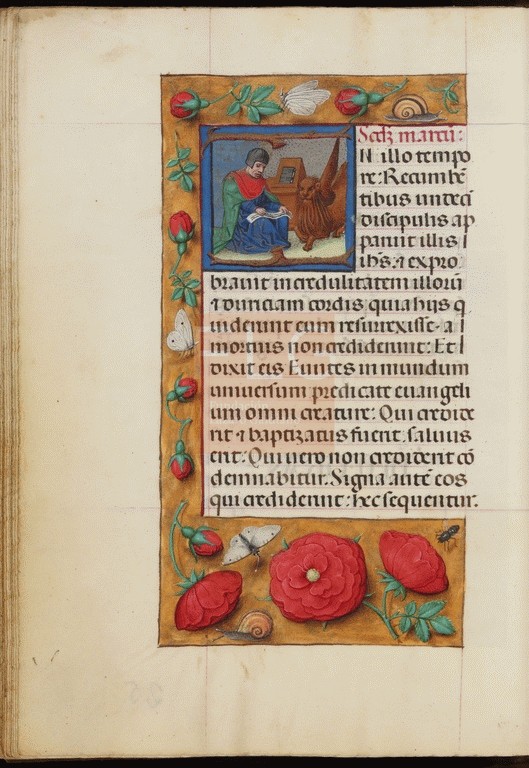 Scd̄z marcū:
N illo tempo
re: Recumbē
tibus undeci
discipulis ap
paruit illis
ih̄s: ⁊ expro
brauit incredulitatem illorū
⁊ duriciam cordis quia hijs q
uiderunt eum resurrexisse a
mortuis non crediderunt: Et
dixit eis Euntes in mundum
uniuersum predicate euangeli
um omni creature: Qui credide
rit ⁊ baptizatus fuerit, saluus
erit: Qui uero non crediderit cō
demnabitur. Signa autē eos
qui crediderunt: hec sequentur.